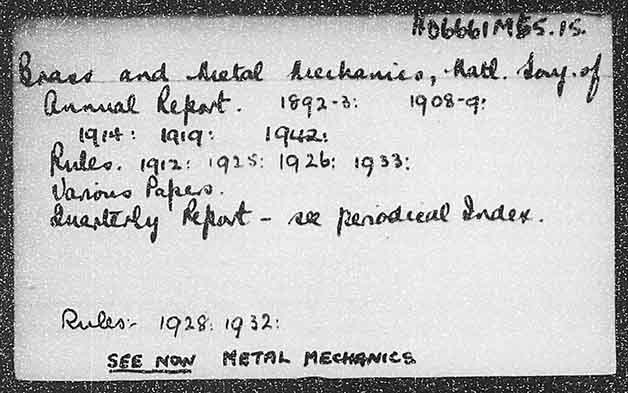 HD6661M65.15.
Brass and Metal Mechanics, Natl. Soy. of
Annual Report. 1892-3: 1908-9:
1914: 1919: 1942:
Rules. 1912: 1925: 1926: 1933:
Various Papers.
Quarterly Report - see periodical Index.
Rules:- 1928: 1932:
SEE NOW METAL MECHANICS